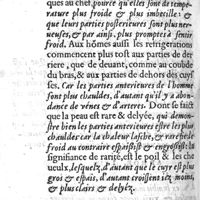 ques au chef, pource qu'elles sont de tempe-
rature plus froide & plus imbecille: &
que leurs parties posterieures sont plus ner-
ueuses, & par ainsi, plus promptes à sentir
froid. Aux hômes aussi les refrigerations
commencent plus tost aux parties de der-
riere, que de deuant, comme au coubde
du bras, & aux parties de dehors des cuys-
ses. Car les parties anterieures de l'homme
sont plus chauldes, d'autant qu'il y a abon-
dance de vénes & d'arteres. Dont se faict
que la peau est rare & delyée, qui demon-
stre bien les parties anterieures estre les plus
chauldes car la chaleur lasche, & rarefie
froid au contraire espaissist & engrossist: la
signifiance de rarité, est le poil & les che
ueulx, lesquelz, d'autant que le cuyr est plus
gros & espais, d'autant croissent ilz moins, &
& plus clairs & deliéz.